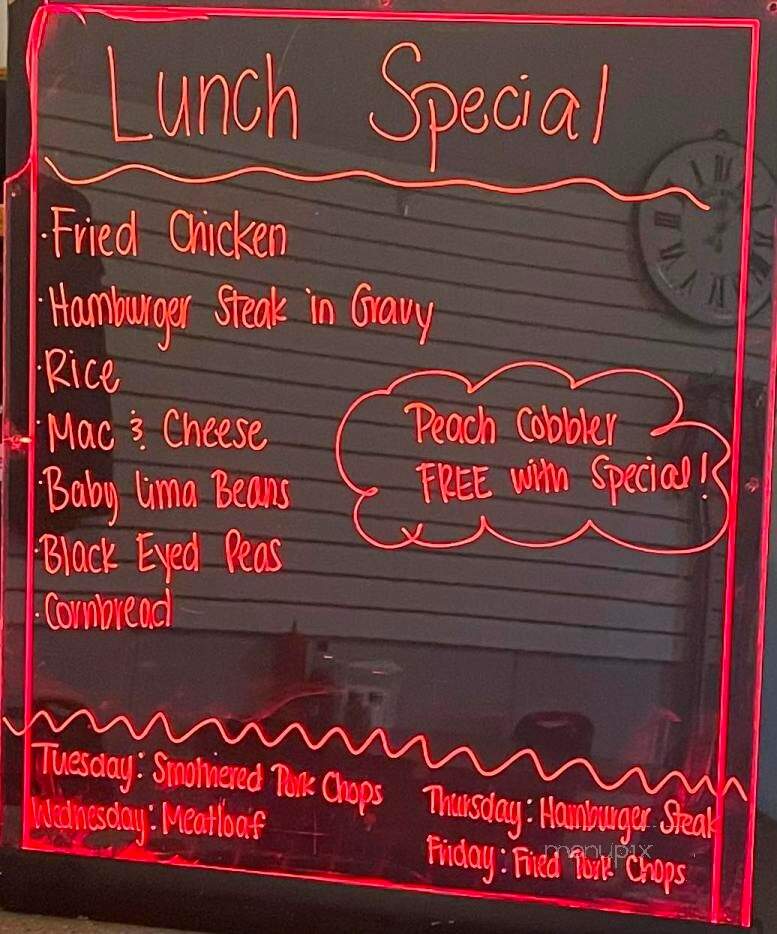 Lunch Special
·Fried Chicken
·Hamburger Steak in Gravy
·Rice
·Mac & Cheese
·Baby Lima Beans
·Black Eyed Peas
·Cornbread
Peach Cobbler
FREE with Special!
Tuesday: Smothered Pork Chops
Wednesday: Meatloaf
Thursday: Hamburger Steak
Friday: Fried Pork Chops
menupix